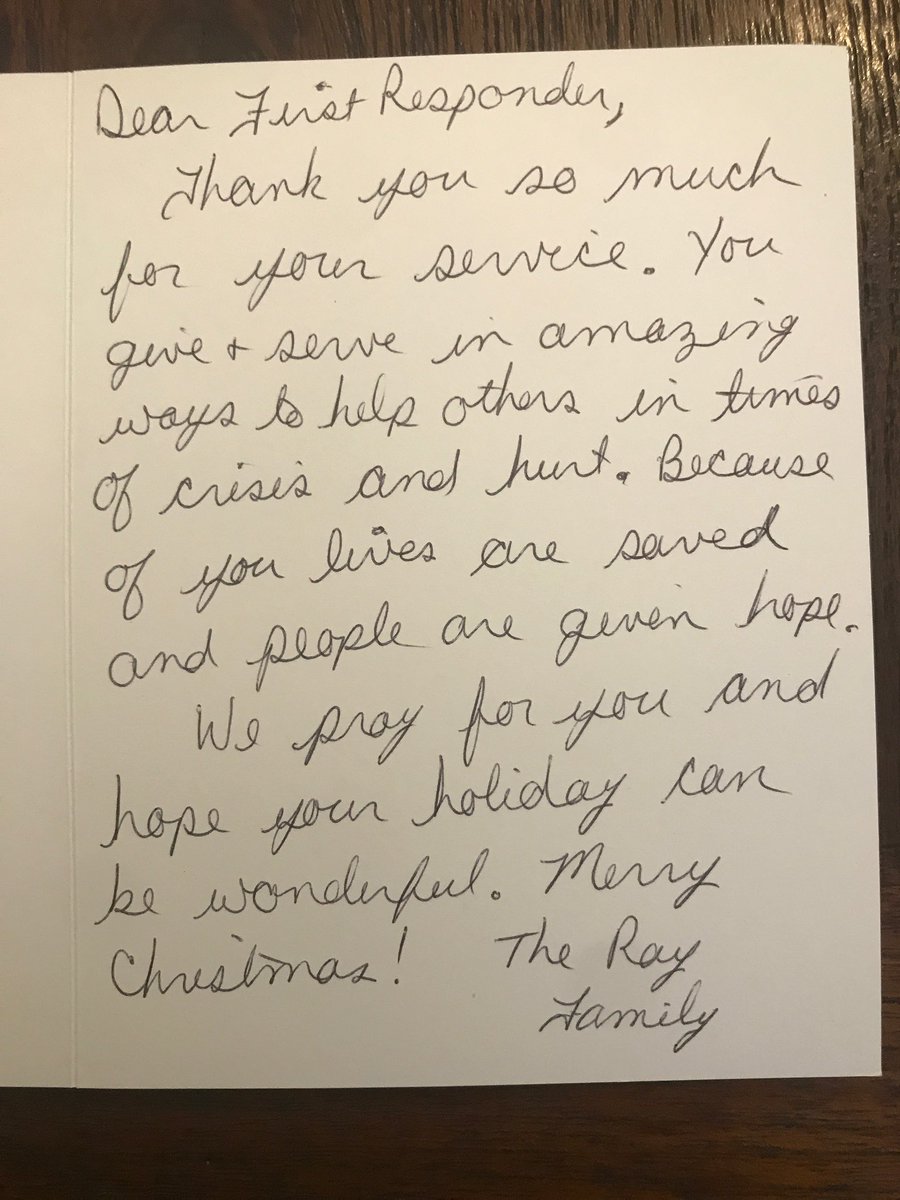 Dear First Responder,
Thank you so much
for your service. You
give + serve in amazing
ways to help others in times
of crisis and hurt. Because
of you lives are saved
and people are given hope.
We pray for you and
hope your holiday can
be wonderful. Merry
Christmas! The Ray
Family